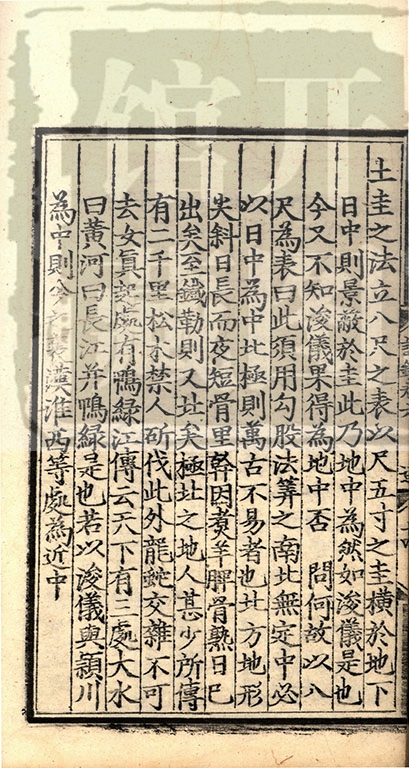 土圭之法立八尺之表以尺五寸之圭横於地下
日中則景蔽於圭此乃地中為然如浚儀是也
今又不知浚儀果得為地中否 問何故以八
尺為表曰此須用勾股法筭之南北無定中必
以日中為中北極則萬古不易者也北方地形
尖斜日長而夜短骨里幹因煑羊胛骨熟日已
出矣至鐵勒則又北矣極北之地人甚少所傳
有二千里松木禁人斫伐此外龍蛇交雜不可
去女真起處有鴨緑江傳云天下有三處大水
曰黃河曰長江并鴨緑是也若以浚儀與頴川
為中則今之襄漢淮西等處為近中
馆开